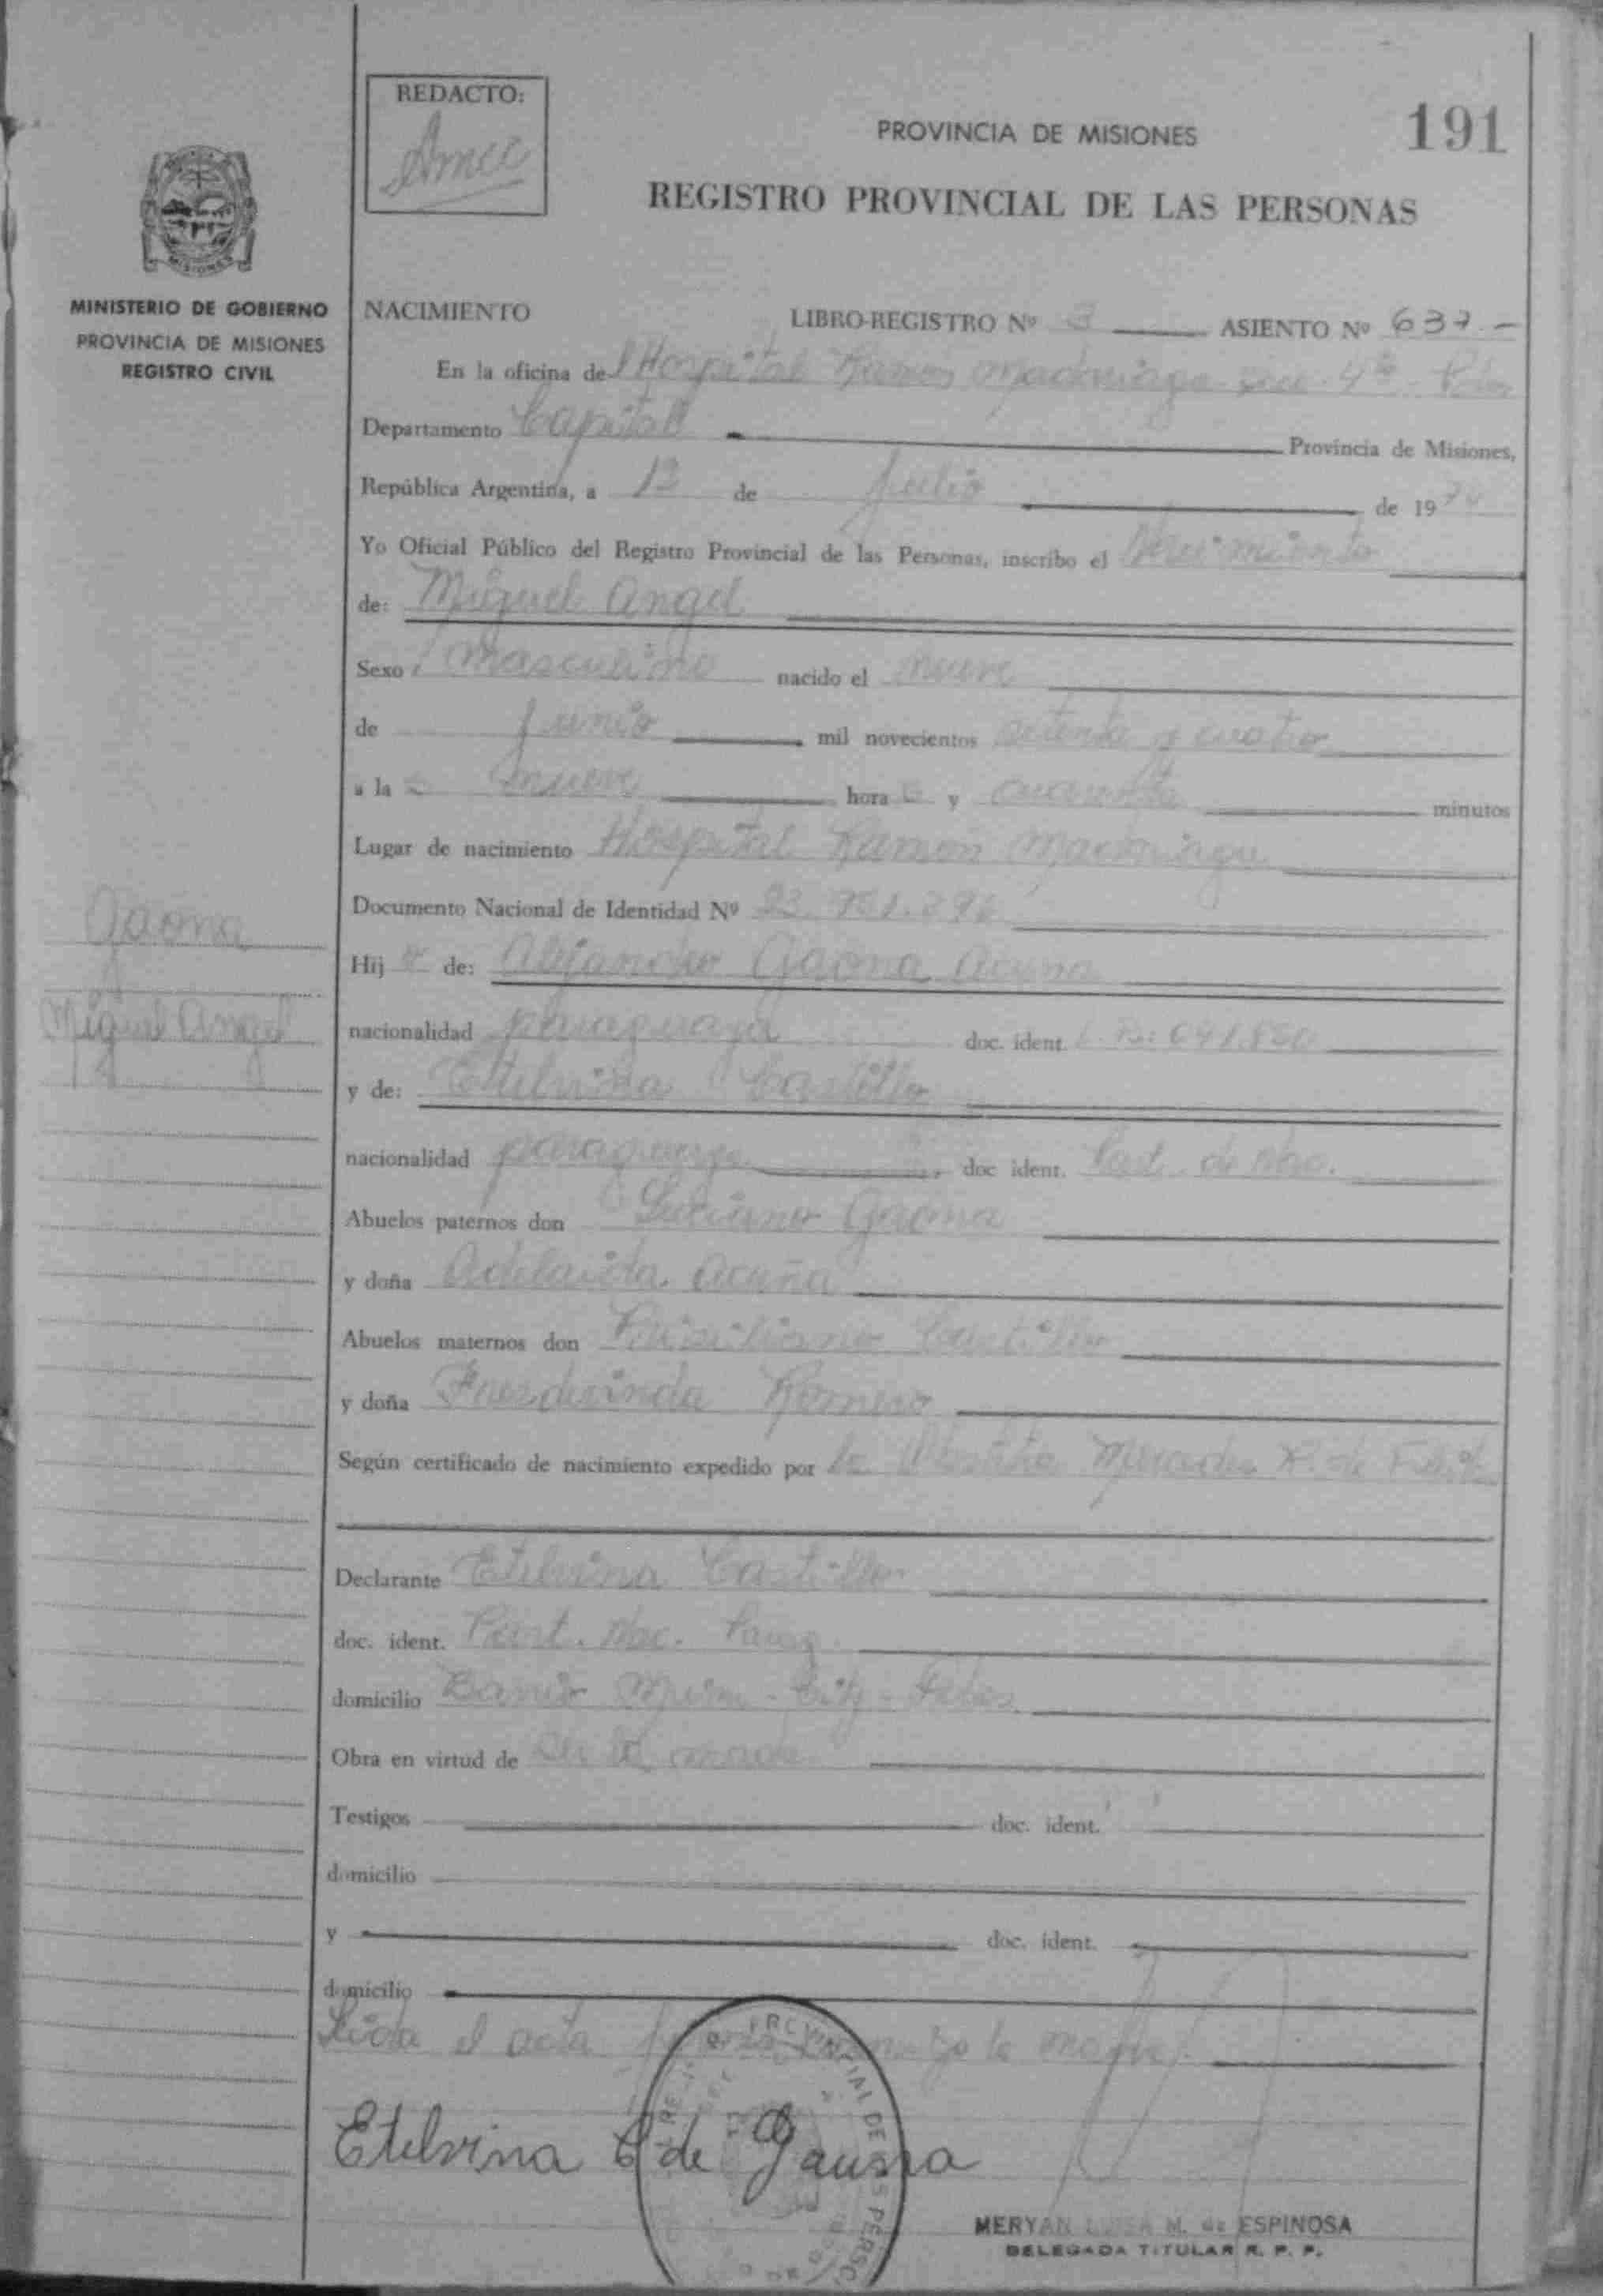 REDACTO:
PROVINCIA DE MISIONES
191
REGISTRO PROVINCIAL DE LAS PERSONAS
MISIONES
MINISTERIO DE GOBIERNO
PROVINCIA DE MISIONES
REGISTRO CIVIL
NACIMIENTO LIBRO-REGISTRO Nº 3 ASIENTO Nº 637.-
En la oficina del Hospital Ramon Madariaga
Departamento Capital Provincia de Misiones,
República Argentina, a 13 de Julio de 1974
Yo Oficial Público del Registro Provincial de las Personas, inscribo el Nacimiento
de: Miguel Angel
Sexo masculino nacido el nueve
de Junio mil novecientos setenta y cuatro
a las nueve horas y cuarenta minutos
Lugar de nacimiento Hospital Ramon Madariaga
Documento Nacional de Identidad Nº
Gaona
Hijo de: Alejandro Gaona Acuña
Miguel Angel
nacionalidad paraguaya doc. ident.
y de: Etelvina Castillo
nacionalidad paraguaya doc ident. Part. de Nac.
Abuelos paternos don Luciano Gaona
y doña Adelaida Acuña
Abuelos maternos don Castillo
y doña Romero
Según certificado de nacimiento expedido por la Mercedes R. de
Declarante Etelvina Castillo
doc. ident. Part. Nac. Parag
domicilio Barrio
Obra en virtud de ser la madre
Testigos doc. ident.
domicilio
y doc. ident.
domicilio
Leida el acta firma conmigo la madre.
Etelvina C de Gauna
PROVINCIAL DE LAS PERSO
MERYAN LUISA M. de ESPINOSA
DELEGADA TITULAR R. P. P.